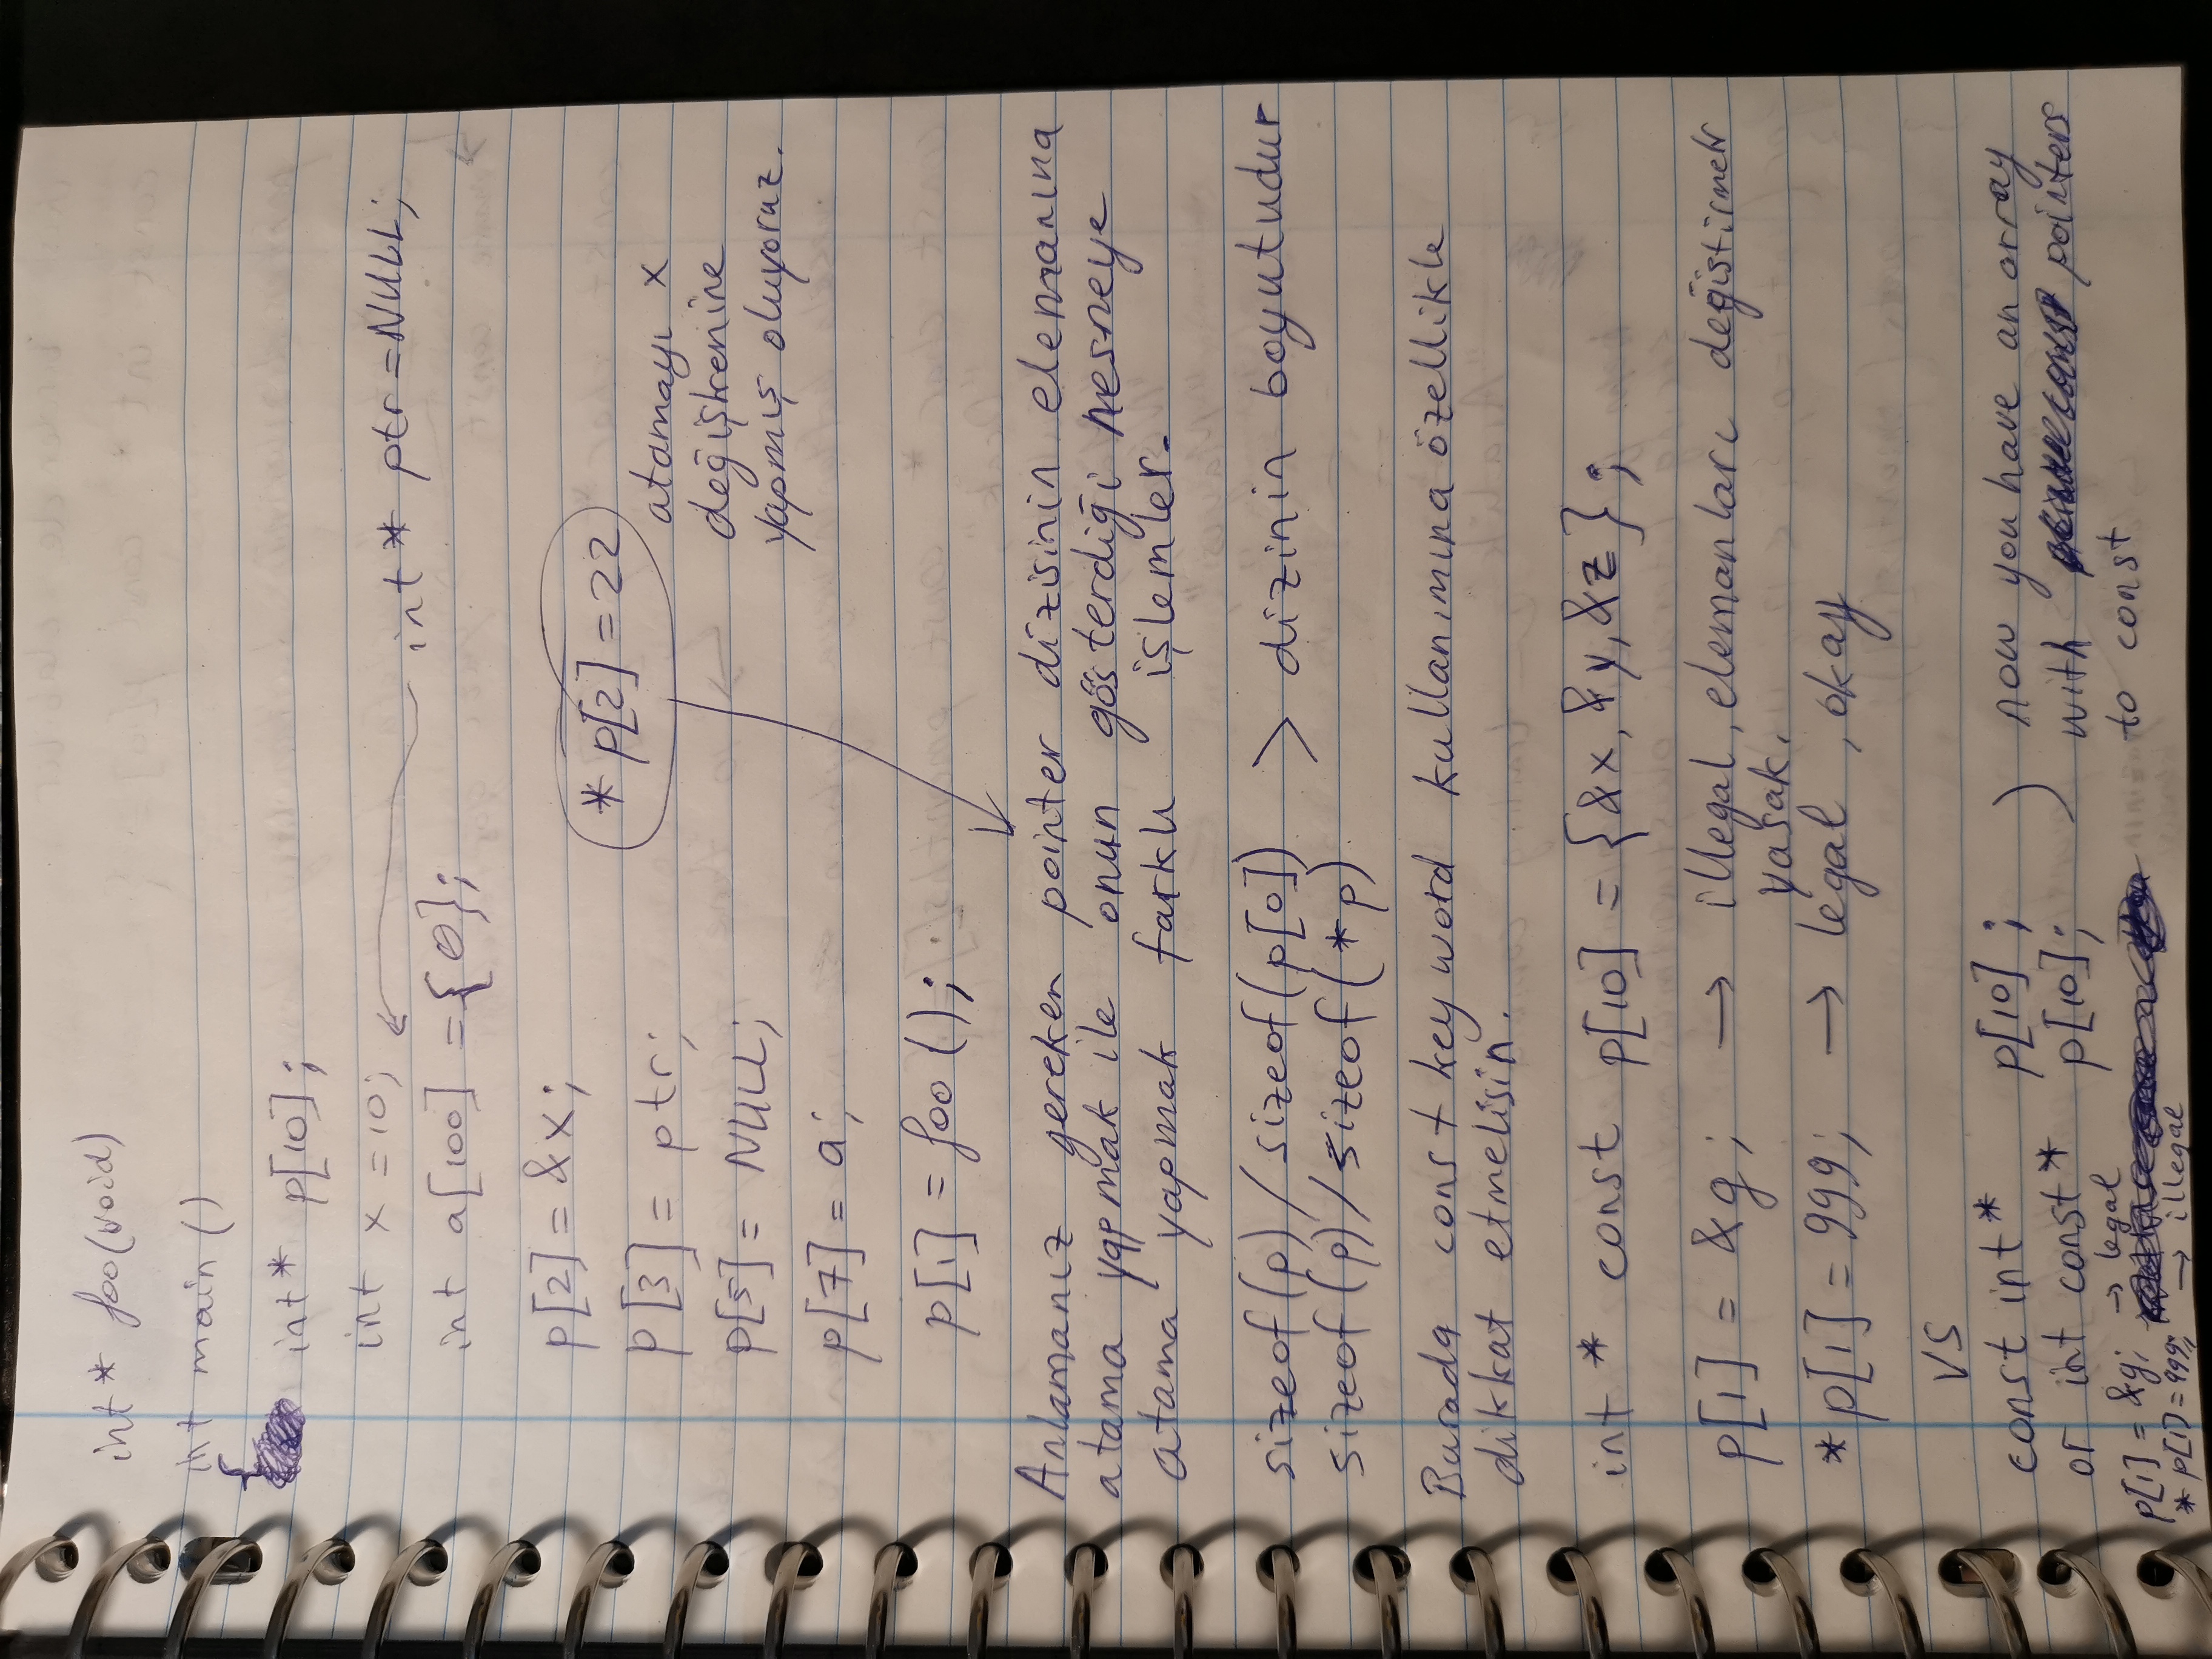 int* foo(void)
int main()
{
int* p[10];
int x = 10;
int* ptr = NULL;
int a[100] = {0};
p[2] = &x;
* p[2] = 22
p[3] = ptr;
atamayı x
değişkenine
yapmış oluyoruz.
p[5] = NULL;
p[7] = a;
p[1] = foo();
Anlamanız gereken pointer dizisinin elemanına
atama yapmak ile onun gösterdiği nesneye
atama yapmak farklı işlemler.
sizeof(p)/sizeof(p[0]) > dizinin boyutudur
sizeof(p)/sizeof(*p)
Burada const keyword kullanımına özellikle
dikkat etmelisin.
int * const p[10] = {&x, &y, &z};
p[1] = &g; → illegal, elemanları değiştirmek
yasak.
*p[1] = 999; → legal, okay
VS
const int* p[10];
or int const* p[10];
now you have an array
with pointers
to const
p[1] = &g; → legal
* p[1] = 999; → illegal